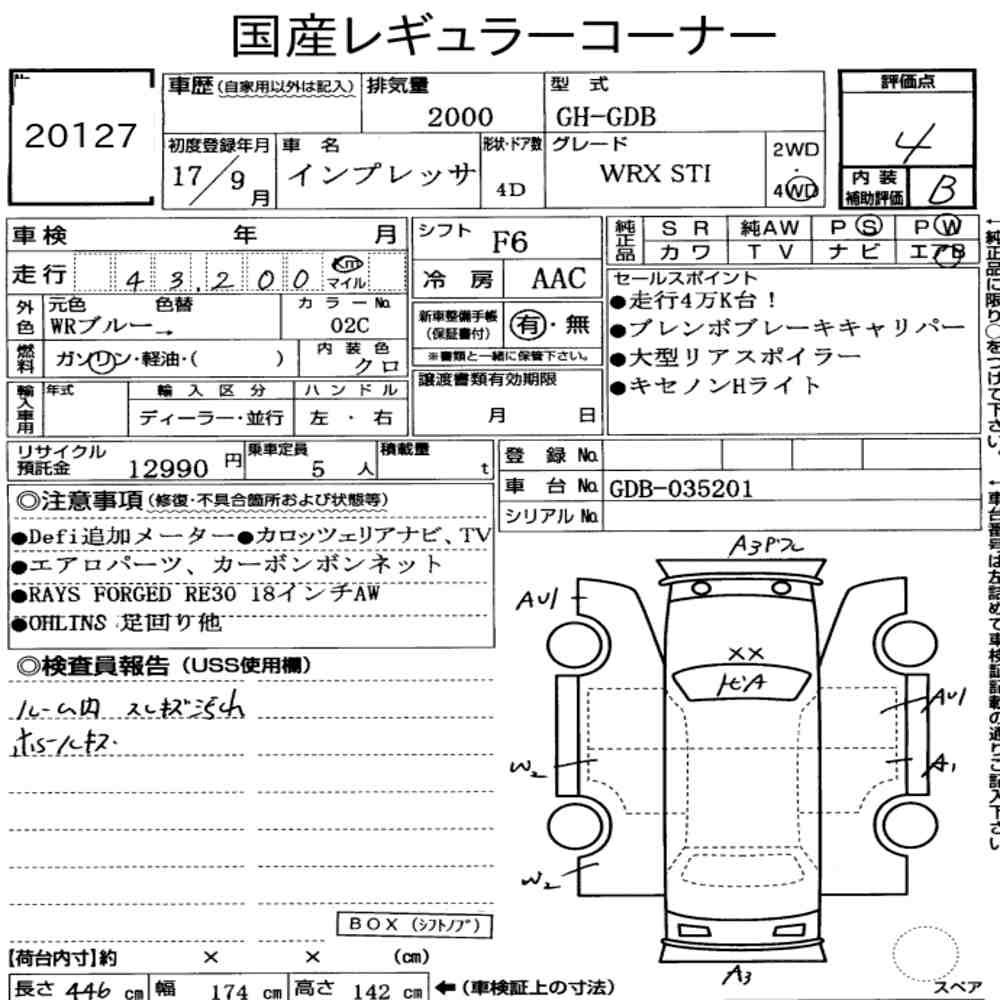 国産レギュラーコーナー
20127
車歴(自家用以外は記入) 排気量 型式
2000 GH-GDB
初度登録年月 車名 形状・ドア数 グレード
17/9月 インプレッサ 4D WRX STI 2WD・4WD
評価点
4
内装補助評価 B
車検 年 月
走行 43,200 Km マイル
外色 元色 色替 カラーNo.
WRブルー→ 02C
燃料 ガソリン・軽油・( ) 内装色 クロ
輸入車用 年式 輸入区分 ハンドル
ディーラー・並行 左・右
シフト F6
冷房 AAC
新車整備手帳(保証書付) 有・無
※書類と一緒に保管下さい。
譲渡書類有効期限
月 日
純正品 SR 純AW PS PW
カワ TV ナビ エアB
セールスポイント
●走行4万K台!
●ブレンボブレーキキャリパー
●大型リアスポイラー
●キセノンHライト
←純正品に限り○をつけて下さい。
リサイクル預託金 12990円 乗車定員 5人 積載量 t
登録No.
車台No. GDB-035201
シリアルNo.
←車台番号は左詰めで車検証記載の通りご記入下さい
◎注意事項(修復・不具合箇所および状態等)
●Defi追加メーター●カロッツェリアナビ、TV
●エアロパーツ、カーボンボンネット
●RAYS FORGED RE30 18インチAW
●OHLINS 足回り他
◎検査員報告(USS使用欄)
ルーム内 スレキズ汚れ
ホイールキズ
A3Pフレ
AU1
XX
ヒA
AU1
A1
W2
W2
A3
BOX(シフトノブ)
【荷台内寸】約 × × (cm)
長さ 446 cm 幅 174 cm 高さ 142 cm ←(車検証上の寸法)
スペア